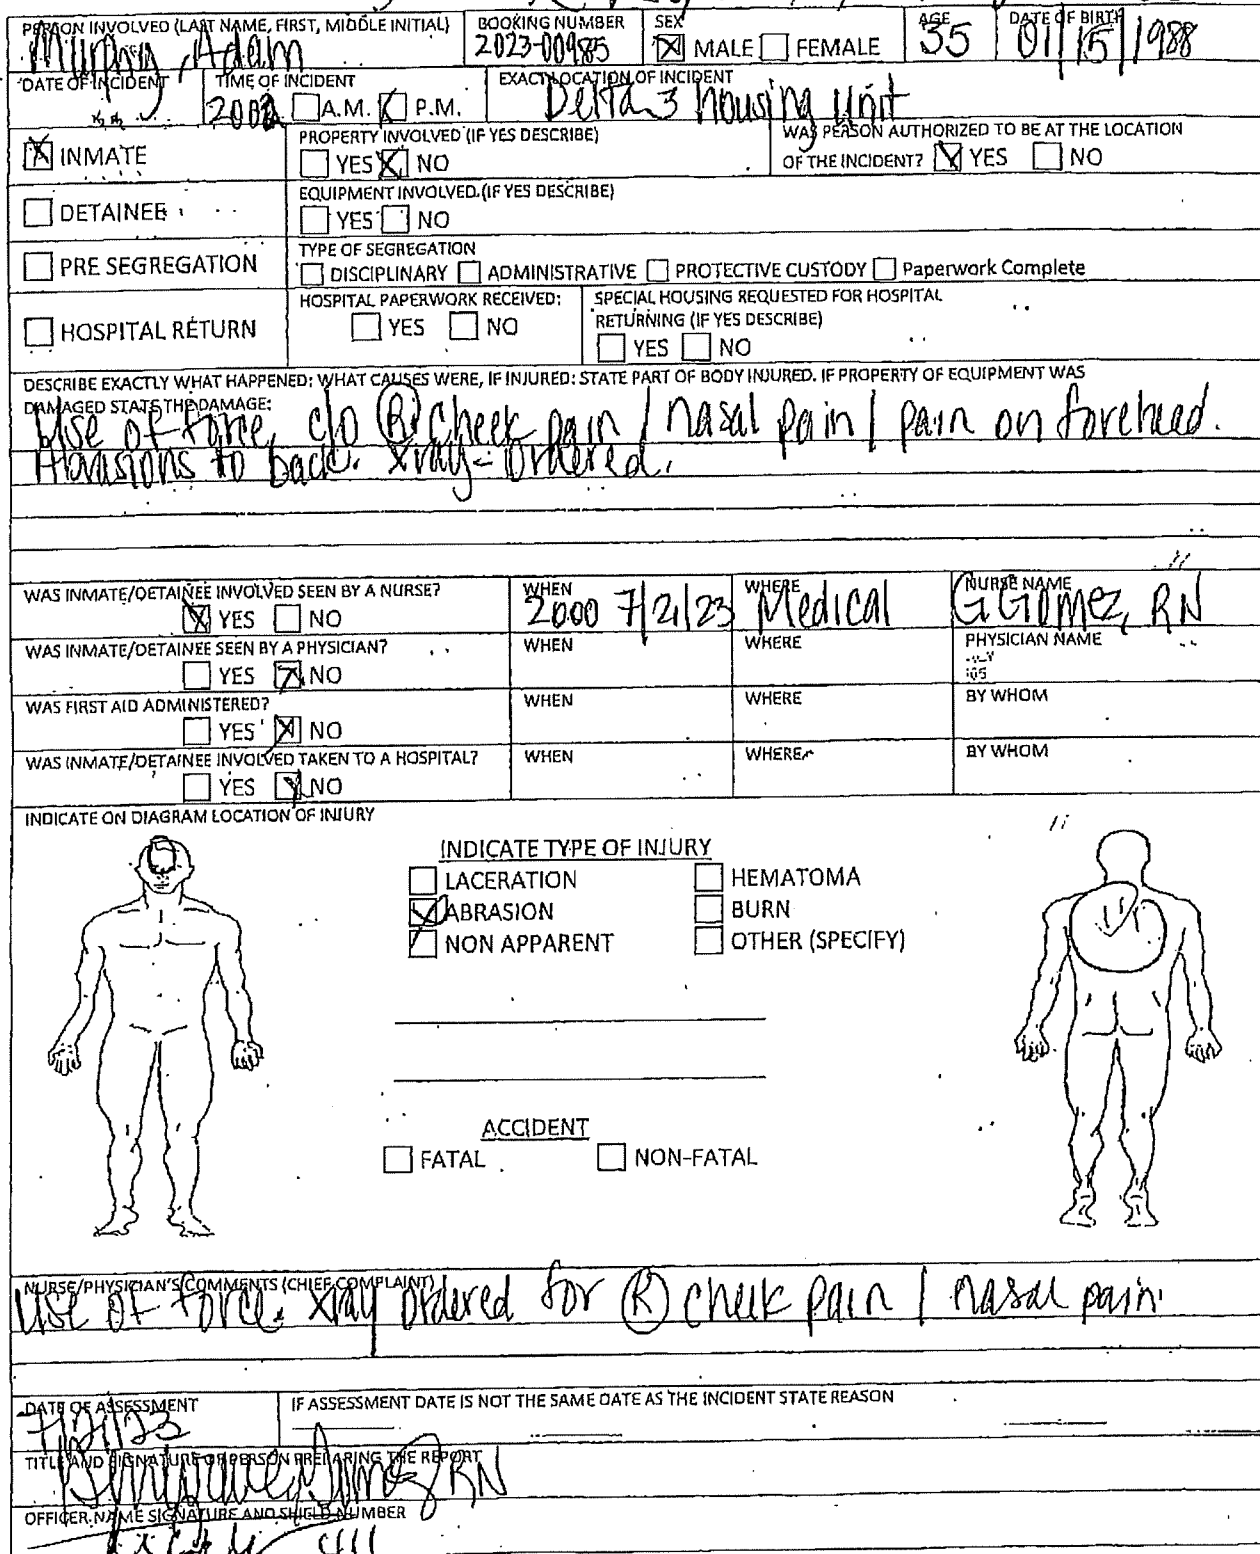 PERSON INVOLVED (LAST NAME, FIRST, MIDDLE INITIAL) BOOKING NUMBER SEX AGE DATE OF BIRTH
Murphy, Adam 2023-00985 MALE FEMALE 35 01/15/1988
DATE OF INCIDENT TIME OF INCIDENT EXACT LOCATION OF INCIDENT
A.M. P.M. Delta 3 housing unit
INMATE PROPERTY INVOLVED (IF YES DESCRIBE) WAS PERSON AUTHORIZED TO BE AT THE LOCATION
YES NO OF THE INCIDENT? YES NO
DETAINEE EQUIPMENT INVOLVED (IF YES DESCRIBE)
YES NO
PRE SEGREGATION TYPE OF SEGREGATION
DISCIPLINARY ADMINISTRATIVE PROTECTIVE CUSTODY Paperwork Complete
HOSPITAL RETURN HOSPITAL PAPERWORK RECEIVED: SPECIAL HOUSING REQUESTED FOR HOSPITAL
YES NO RETURNING (IF YES DESCRIBE)
YES NO
DESCRIBE EXACTLY WHAT HAPPENED: WHAT CAUSES WERE, IF INJURED: STATE PART OF BODY INJURED. IF PROPERTY OF EQUIPMENT WAS
DAMAGED STATE THE DAMAGE:
Use of force, c/o (R) cheek pain / nasal pain / pain on forehead.
Abrasions to back. xray - ordered.
WAS INMATE/DETAINEE INVOLVED SEEN BY A NURSE? WHEN WHERE NURSE NAME
YES NO 2000 7/21/23 Medical G Gomez, RN
WAS INMATE/DETAINEE SEEN BY A PHYSICIAN? WHEN WHERE PHYSICIAN NAME
YES NO
WAS FIRST AID ADMINISTERED? WHEN WHERE BY WHOM
YES NO
WAS INMATE/DETAINEE INVOLVED TAKEN TO A HOSPITAL? WHEN WHERE BY WHOM
YES NO
INDICATE ON DIAGRAM LOCATION OF INJURY
INDICATE TYPE OF INJURY
LACERATION HEMATOMA
ABRASION BURN
NON APPARENT OTHER (SPECIFY)
ACCIDENT
FATAL NON-FATAL
NURSE/PHYSICIAN'S COMMENTS (CHIEF COMPLAINT)
Use of force. xray ordered for (R) cheek pain / nasal pain.
DATE OF ASSESSMENT IF ASSESSMENT DATE IS NOT THE SAME DATE AS THE INCIDENT STATE REASON
7/21/23
TITLE AND SIGNATURE OF PERSON PREPARING THE REPORT
RN
OFFICER NAME SIGNATURE AND SHIELD NUMBER